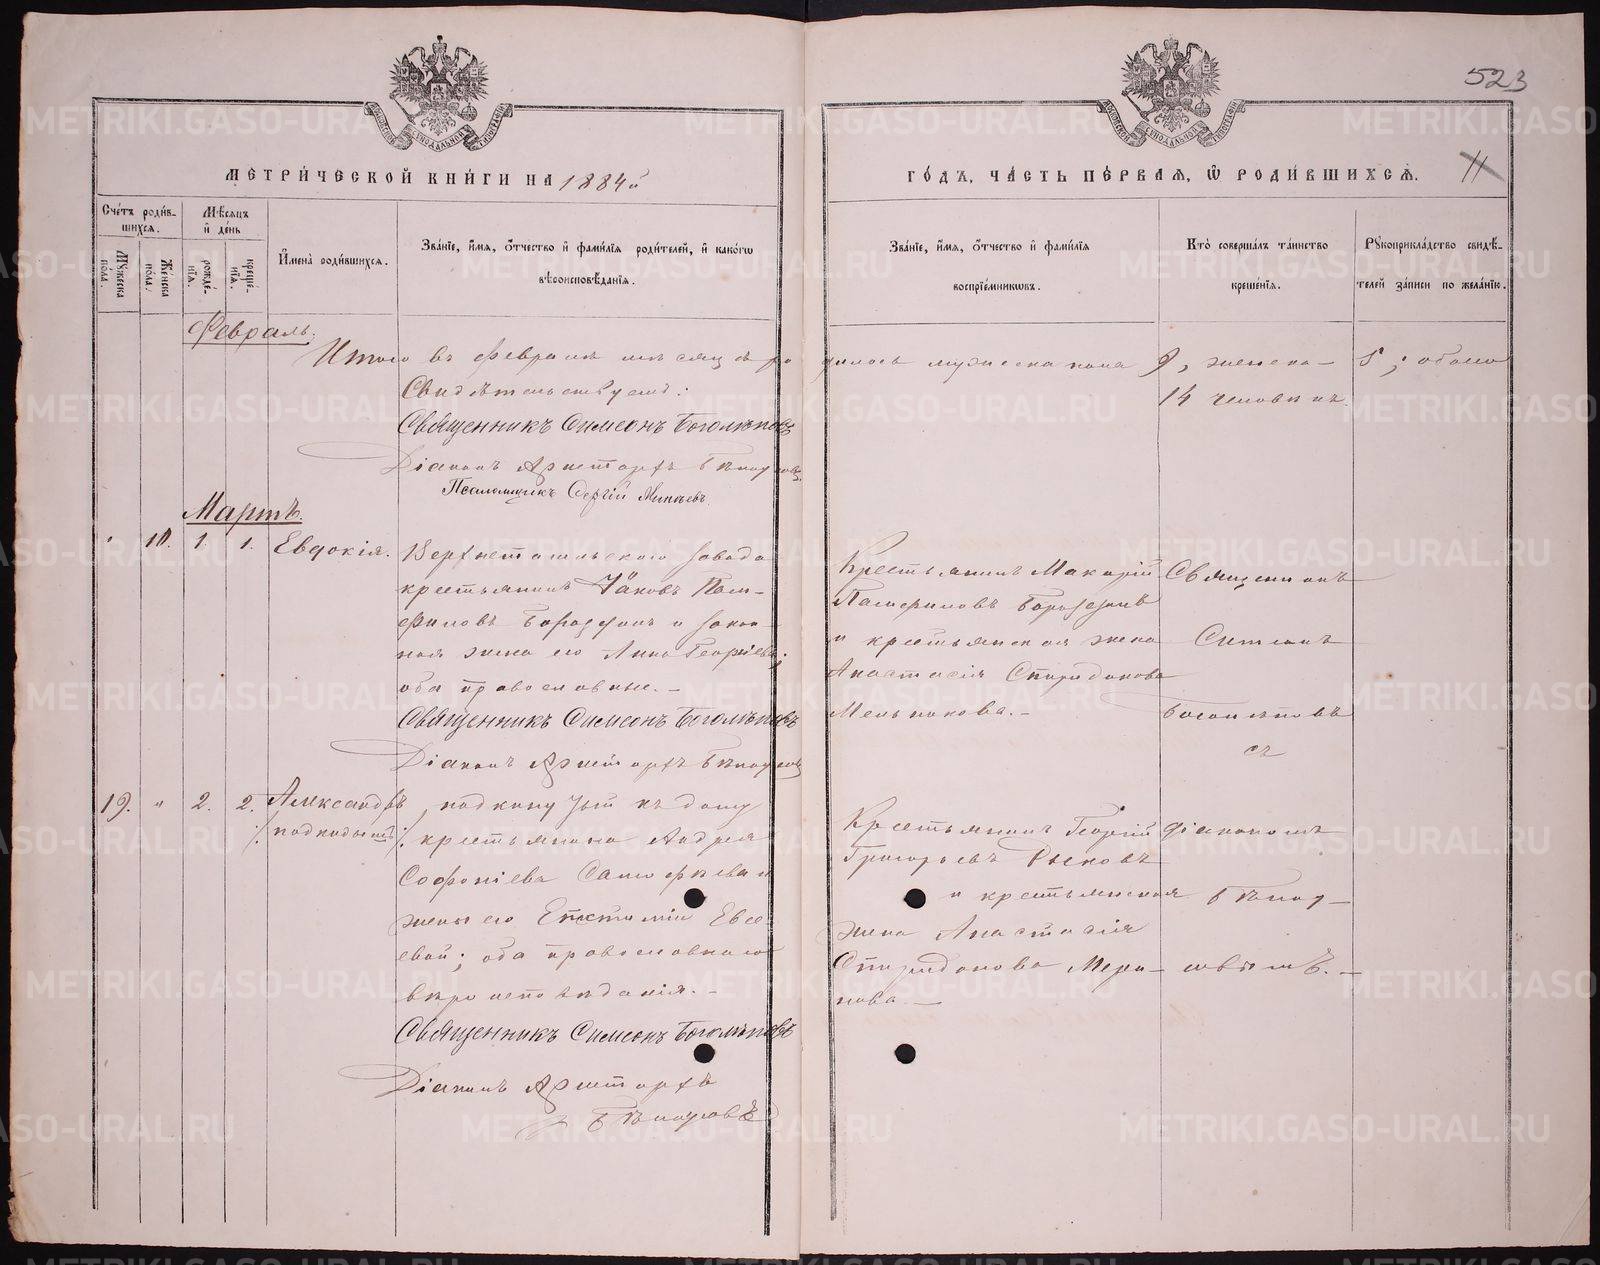 523
МЕТРИЧЕСКОЙ КНИГИ НА 1884й
ГОДЪ, ЧАСТЬ ПЕРВАЯ, Ѡ РОДИВШИХСЯ.
11
Счетъ родив-
шихся.
Мѣсяцъ
и день
Мужеска
пола.
Женска
пола.
рожде-
нія.
креще-
нія.
Имена родившихся.
Званіе, имя, отчество и фамилія родителей, и какогѡ
вѣроисповѣданія.
Званіе, имя, отчество и фамилія
воспріемниковъ.
Кто совершалъ таинство
крещенія.
Рукоприкладство свидѣ-
телей записи по желанію.
Февраль.
Итого въ Февралѣ мѣсяцѣ ро
дилось мужеска пола 9, женска — 5; обоего
14 человѣкъ.
Свидѣтельствуемъ:
Священникъ Симеонъ Боголѣповъ
Діаконъ Аристархъ
Псаломщикъ Сергій
Мартъ.
" 10. 1. 1. Евдокія.
Верхнетагильскаго завода
крестьянинъ Іаковъ Пам-
филовъ Бородинъ и закон-
ная жена его Анна Георгіева;
оба православные. —
Священникъ Симеонъ Боголѣповъ
Діаконъ Аристархъ
Крестьянинъ Макарій
Памфиловъ Бородинъ
и крестьянская жена
Анастасія Спиридонова
Мельникова. —
Священникъ
Симеонъ
Боголѣповъ
19. " 2. 2. Александръ
/подкидышъ/
подкинутый къ дому
крестьянина Андрея
Софоніева
жены его Евсе
евой; оба православнаго
вѣроисповѣданія. —
Священникъ Симеонъ Боголѣповъ
Діаконъ Аристархъ
Крестьянинъ Георгій
Григорьевъ Рыковъ
и крестьянская
жена Анастасія
Спиридонова
діакономъ